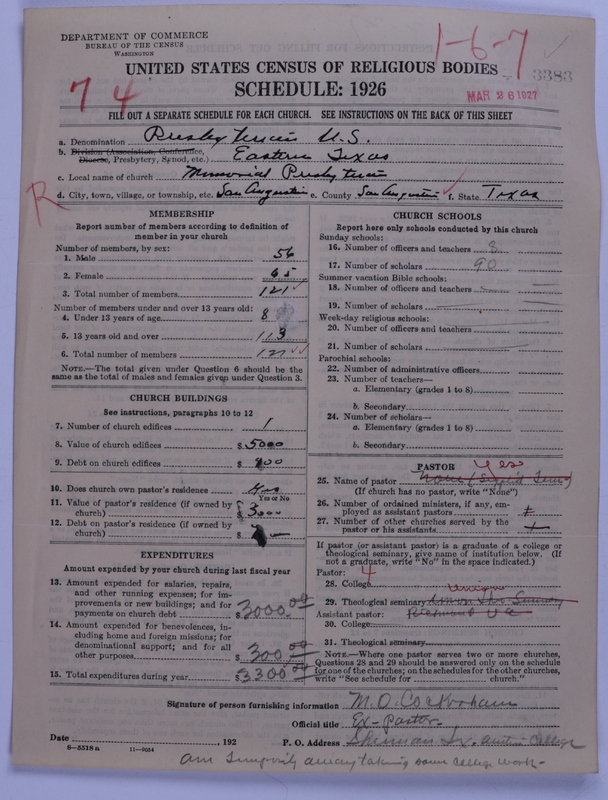 DEPARTMENT OF COMMERCE
BUREAU OF THE CENSUS
WASHINGTON
1-6-7
UNITED STATES CENSUS OF RELIGIOUS BODIES
3383
SCHEDULE: 1926
74
MAR 26 1927
FILL OUT A SEPARATE SCHEDULE FOR EACH CHURCH. SEE INSTRUCTIONS ON THE BACK OF THIS SHEET
a. Denomination Presbyterian U.S.
b. Division (Association, Conference, Diocese, Presbytery, Synod, etc.) Eastern Texas
c. Local name of church Memorial Presbyterian
R
d. City, town, village, or township, etc. San Augustine e. County San Augustine f. State Texas
MEMBERSHIP
Report number of members according to definition of
member in your church
Number of members, by sex:
1. Male 56
2. Female 65
3. Total number of members 121
Number of members under and over 13 years old:
4. Under 13 years of age 8
5. 13 years old and over 113
6. Total number of members 121
NOTE.—The total given under Question 6 should be the
same as the total of males and females given under Question 3.
CHURCH BUILDINGS
See instructions, paragraphs 10 to 12
7. Number of church edifices 1
8. Value of church edifices $ 5000
9. Debt on church edifices $
10. Does church own pastor's residence Yes
Yes or No
11. Value of pastor's residence (if owned by
church) $ 3000
12. Debt on pastor's residence (if owned by
church) $
EXPENDITURES
Amount expended by your church during last fiscal year
13. Amount expended for salaries, repairs,
and other running expenses; for im-
provements or new buildings; and for
payments on church debt $ 3000.00
14. Amount expended for benevolences, in-
cluding home and foreign missions; for
denominational support; and for all
other purposes $ 300.00
15. Total expenditures during year $ 3300.00
CHURCH SCHOOLS
Report here only schools conducted by this church
Sunday schools:
16. Number of officers and teachers 8
17. Number of scholars 90
Summer vacation Bible schools:
18. Number of officers and teachers
19. Number of scholars
Week-day religious schools:
20. Number of officers and teachers
21. Number of scholars
Parochial schools:
22. Number of administrative officers
23. Number of teachers—
a. Elementary (grades 1 to 8)
b. Secondary
24. Number of scholars—
a. Elementary (grades 1 to 8)
b. Secondary
PASTOR
yes
25. Name of pastor None
(If church has no pastor, write "None")
26. Number of ordained ministers, if any, em-
ployed as assistant pastors
27. Number of other churches served by the
pastor or his assistants
If pastor (or assistant pastor) is a graduate of a college or
theological seminary, give name of institution below. (If
not a graduate, write "No" in the space indicated.)
Pastor: 4
28. College
29. Theological seminary Union
Assistant pastor: Richmond Va
30. College
31. Theological seminary
NOTE.—Where one pastor serves two or more churches,
Questions 28 and 29 should be answered only on the schedule
for one of the churches; on the schedules for the other churches,
write "See schedule for church.
Signature of person furnishing information M.O. Cockraham
Official title Ex-pastor
Date , 192
P. O. Address Sherman Tx. Austin College
8-5518 a 11-9034
am away taking some college work-